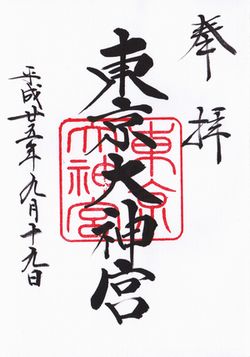 奉拝
東京大神宮
東京大神宮
平成廿五年九月十九日